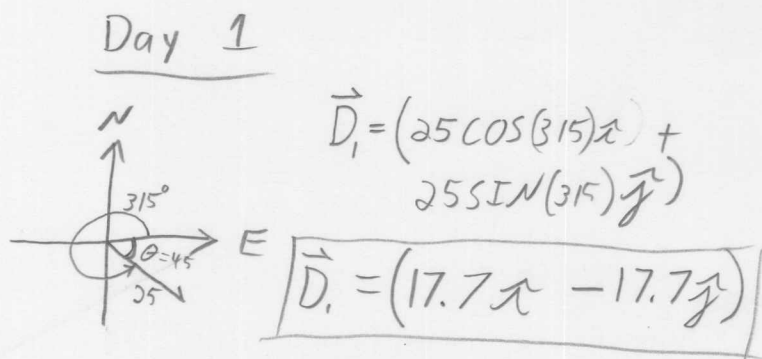 Day 1
N
315°
E
θ=45
25
D⃗₁ = (25COS(315)î +
25SIN(315)ĵ)
D⃗₁ = (17.7î - 17.7ĵ)